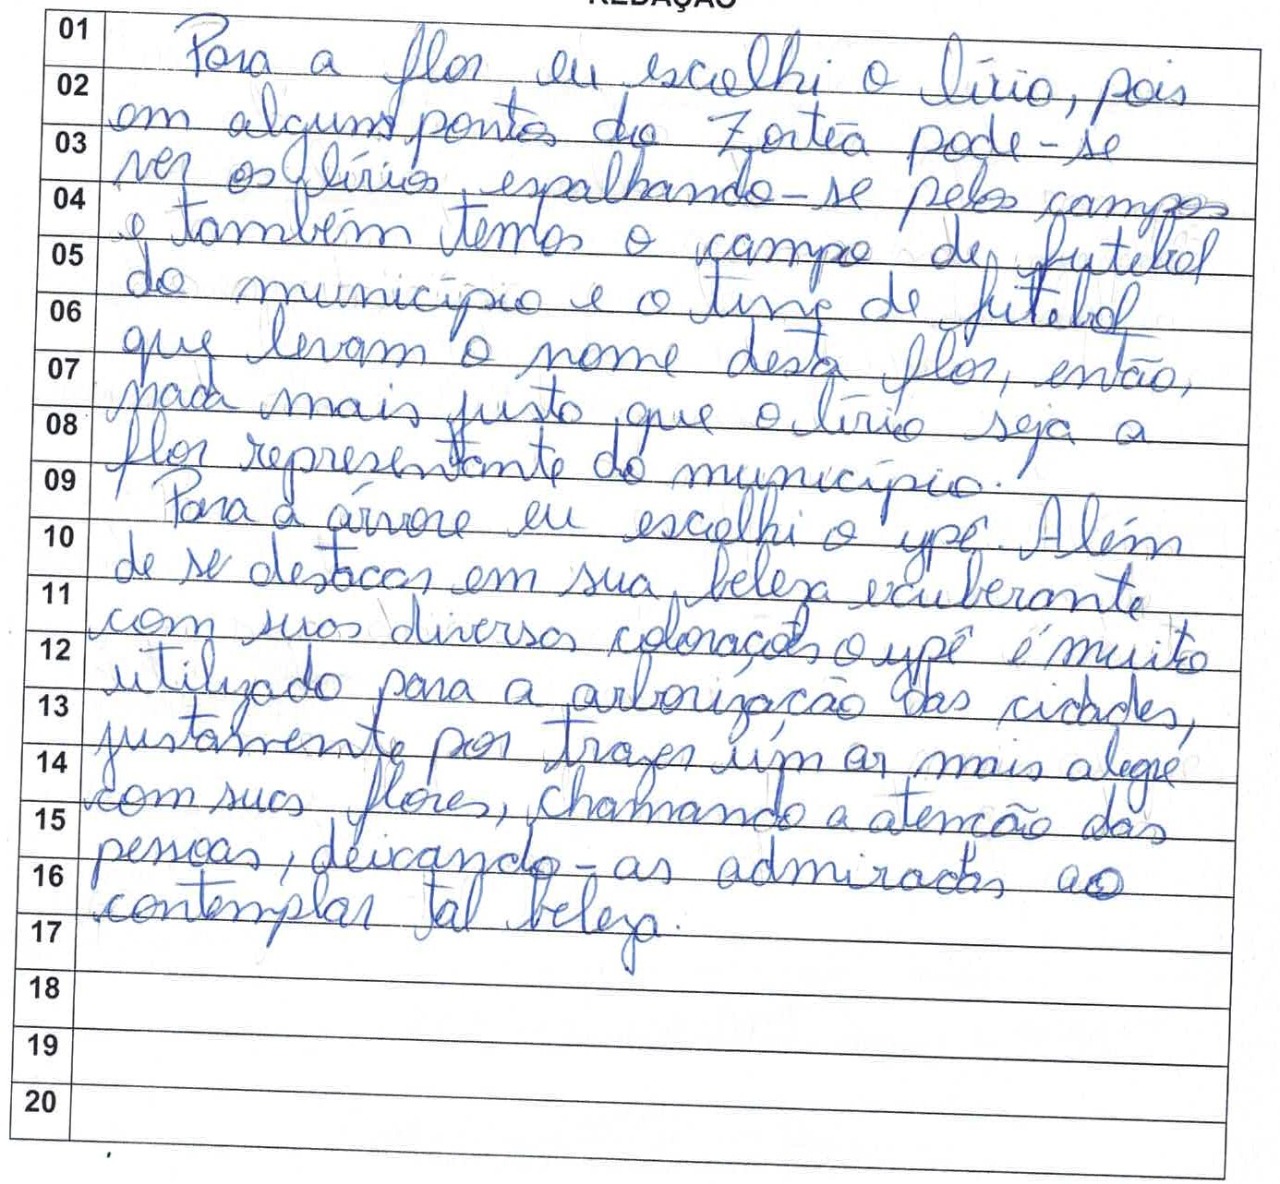 REDAÇÃO
01 Para a flor eu escolhi o lírio, pois
02 em alguns pontos do Zortéa pode-se
03 ver os lírios espalhando-se pelos campos
04 e também temos o campo de futebol
05 do município e o time de futebol
06 que levam o nome desta flor, então,
07 nada mais justo que o lírio seja a
08 flor representante do município.
09 Para a árvore eu escolhi o ypê. Além
10 de se destacar em sua beleza exuberante
11 com suas diversas colorações o ypê é muito
12 utilizado para a arborização das cidades,
13 justamente por trazer um ar mais alegre
14 com suas flores, chamando a atenção das
15 pessoas, deixando-as admiradas ao
16 contemplar tal beleza.
17
18
19
20